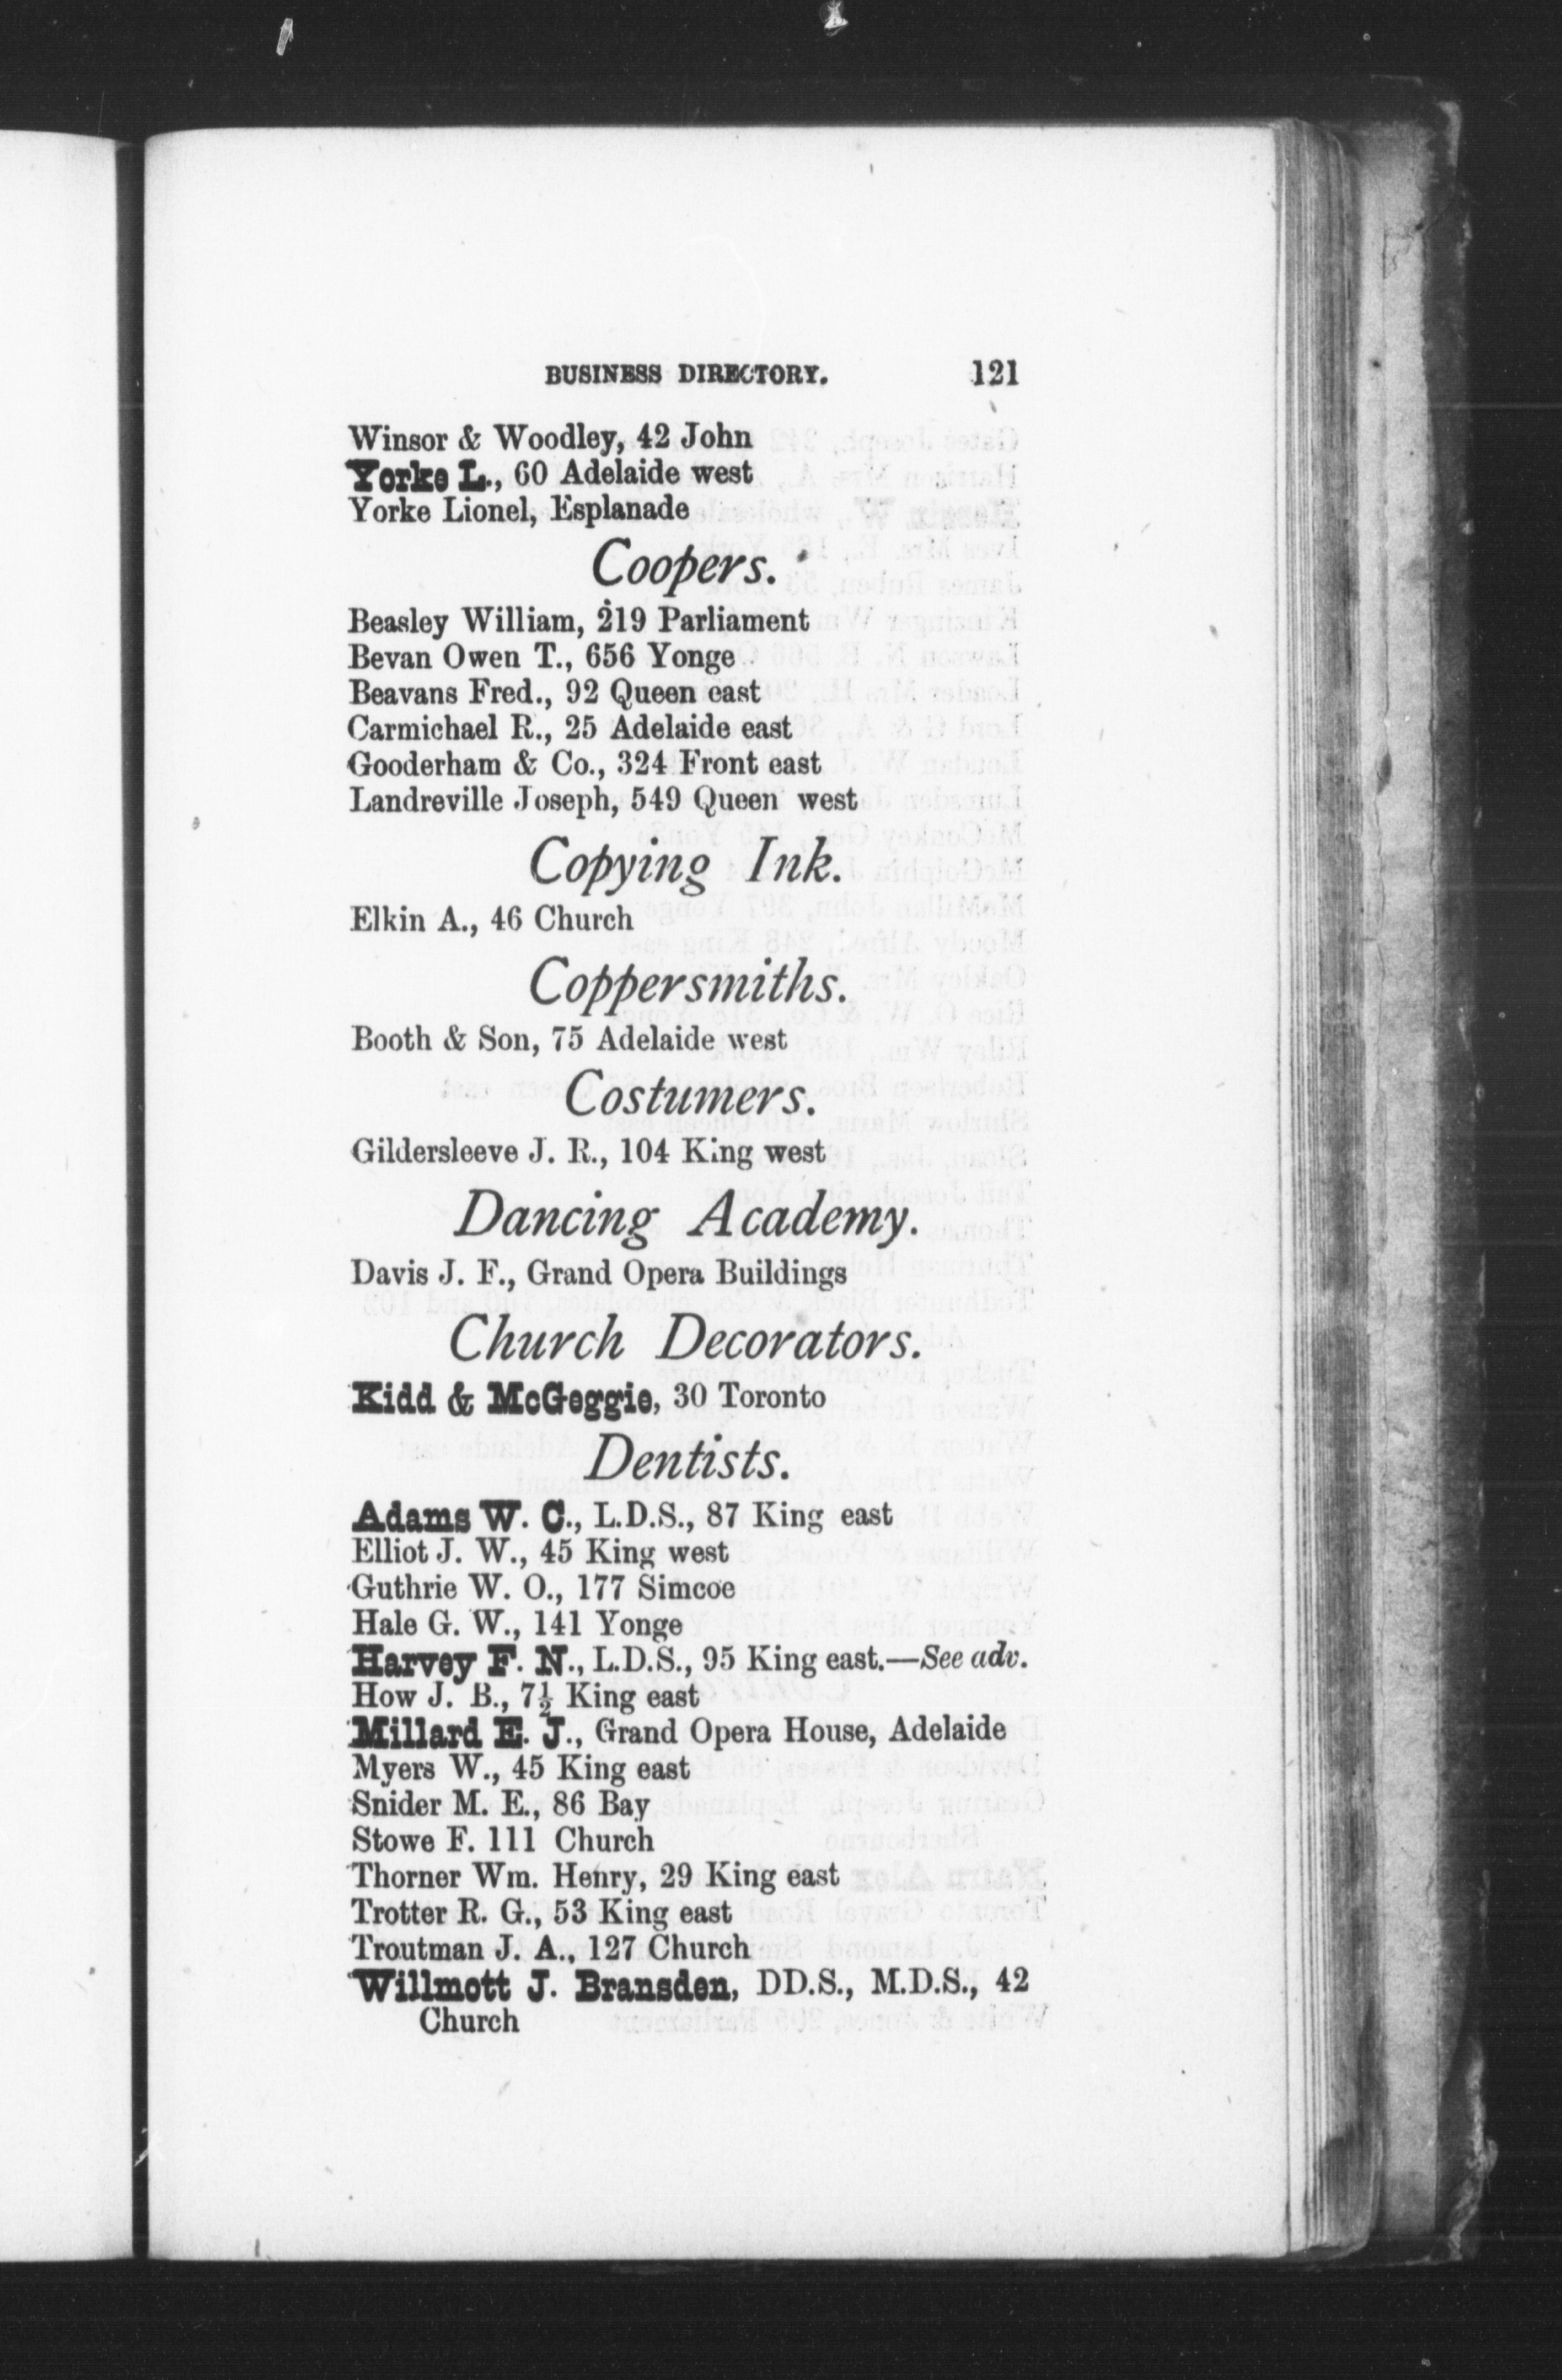 BUSINESS DIRECTORY. 121
Winsor & Woodley, 42 John
Yorke L., 60 Adelaide west
Yorke Lionel, Esplanade
Coopers.
Beasley William, 219 Parliament
Bevan Owen T., 656 Yonge
Beavans Fred., 92 Queen east
Carmichael R., 25 Adelaide east
Gooderham & Co., 324 Front east
Landreville Joseph, 549 Queen west
Copying Ink.
Elkin A., 46 Church
Coppersmiths.
Booth & Son, 75 Adelaide west
Costumers.
Gildersleeve J. R., 104 King west
Dancing Academy.
Davis J. F., Grand Opera Buildings
Church Decorators.
Kidd & McGeggie, 30 Toronto
Dentists.
Adams W. C., L.D.S., 87 King east
Elliot J. W., 45 King west
Guthrie W. O., 177 Simcoe
Hale G. W., 141 Yonge
Harvey F. N., L.D.S., 95 King east.—See adv.
How J. B., 7½ King east
Millard E. J., Grand Opera House, Adelaide
Myers W., 45 King east
Snider M. E., 86 Bay
Stowe F. 111 Church
Thorner Wm. Henry, 29 King east
Trotter R. G., 53 King east
Troutman J. A., 127 Church
Willmott J. Bransden, DD.S., M.D.S., 42
Church